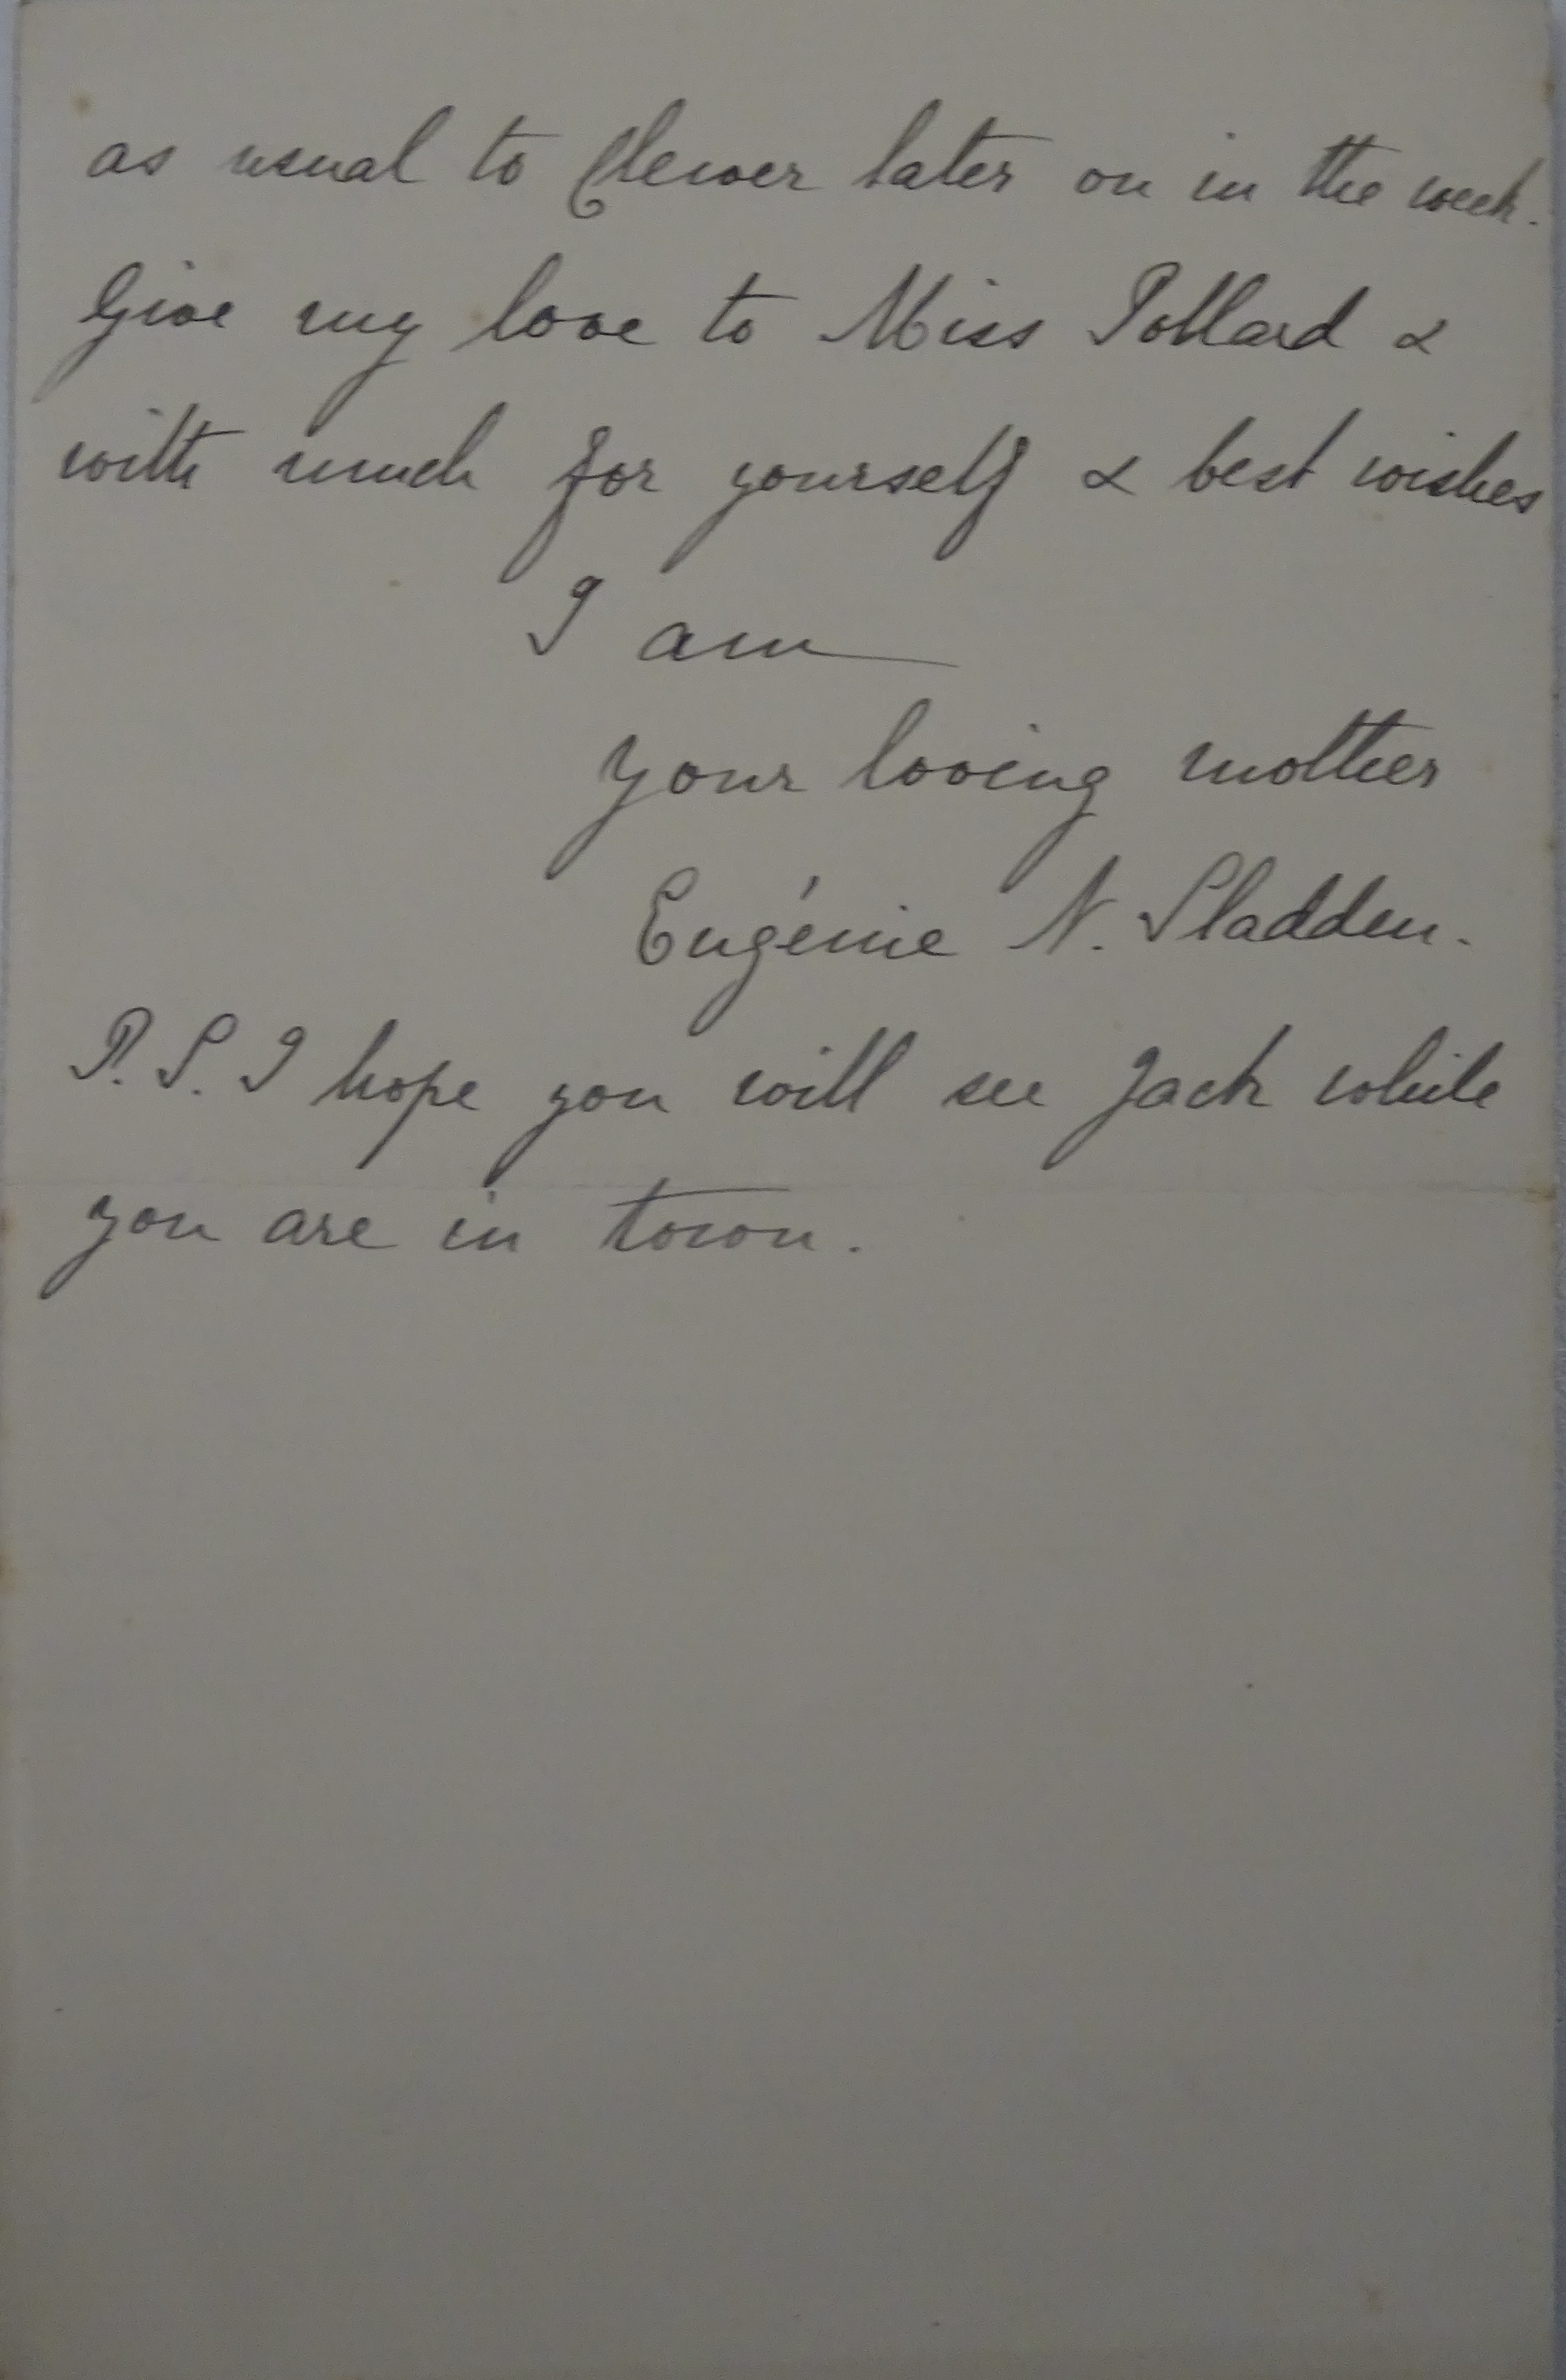 as usual to Clewer later on in the week.
Give my love to Miss Pollard &
with much for yourself & best wishes
I am
your loving mother
Eugénie N. Sladden.
P.S. I hope you will see Jack while
you are in town.